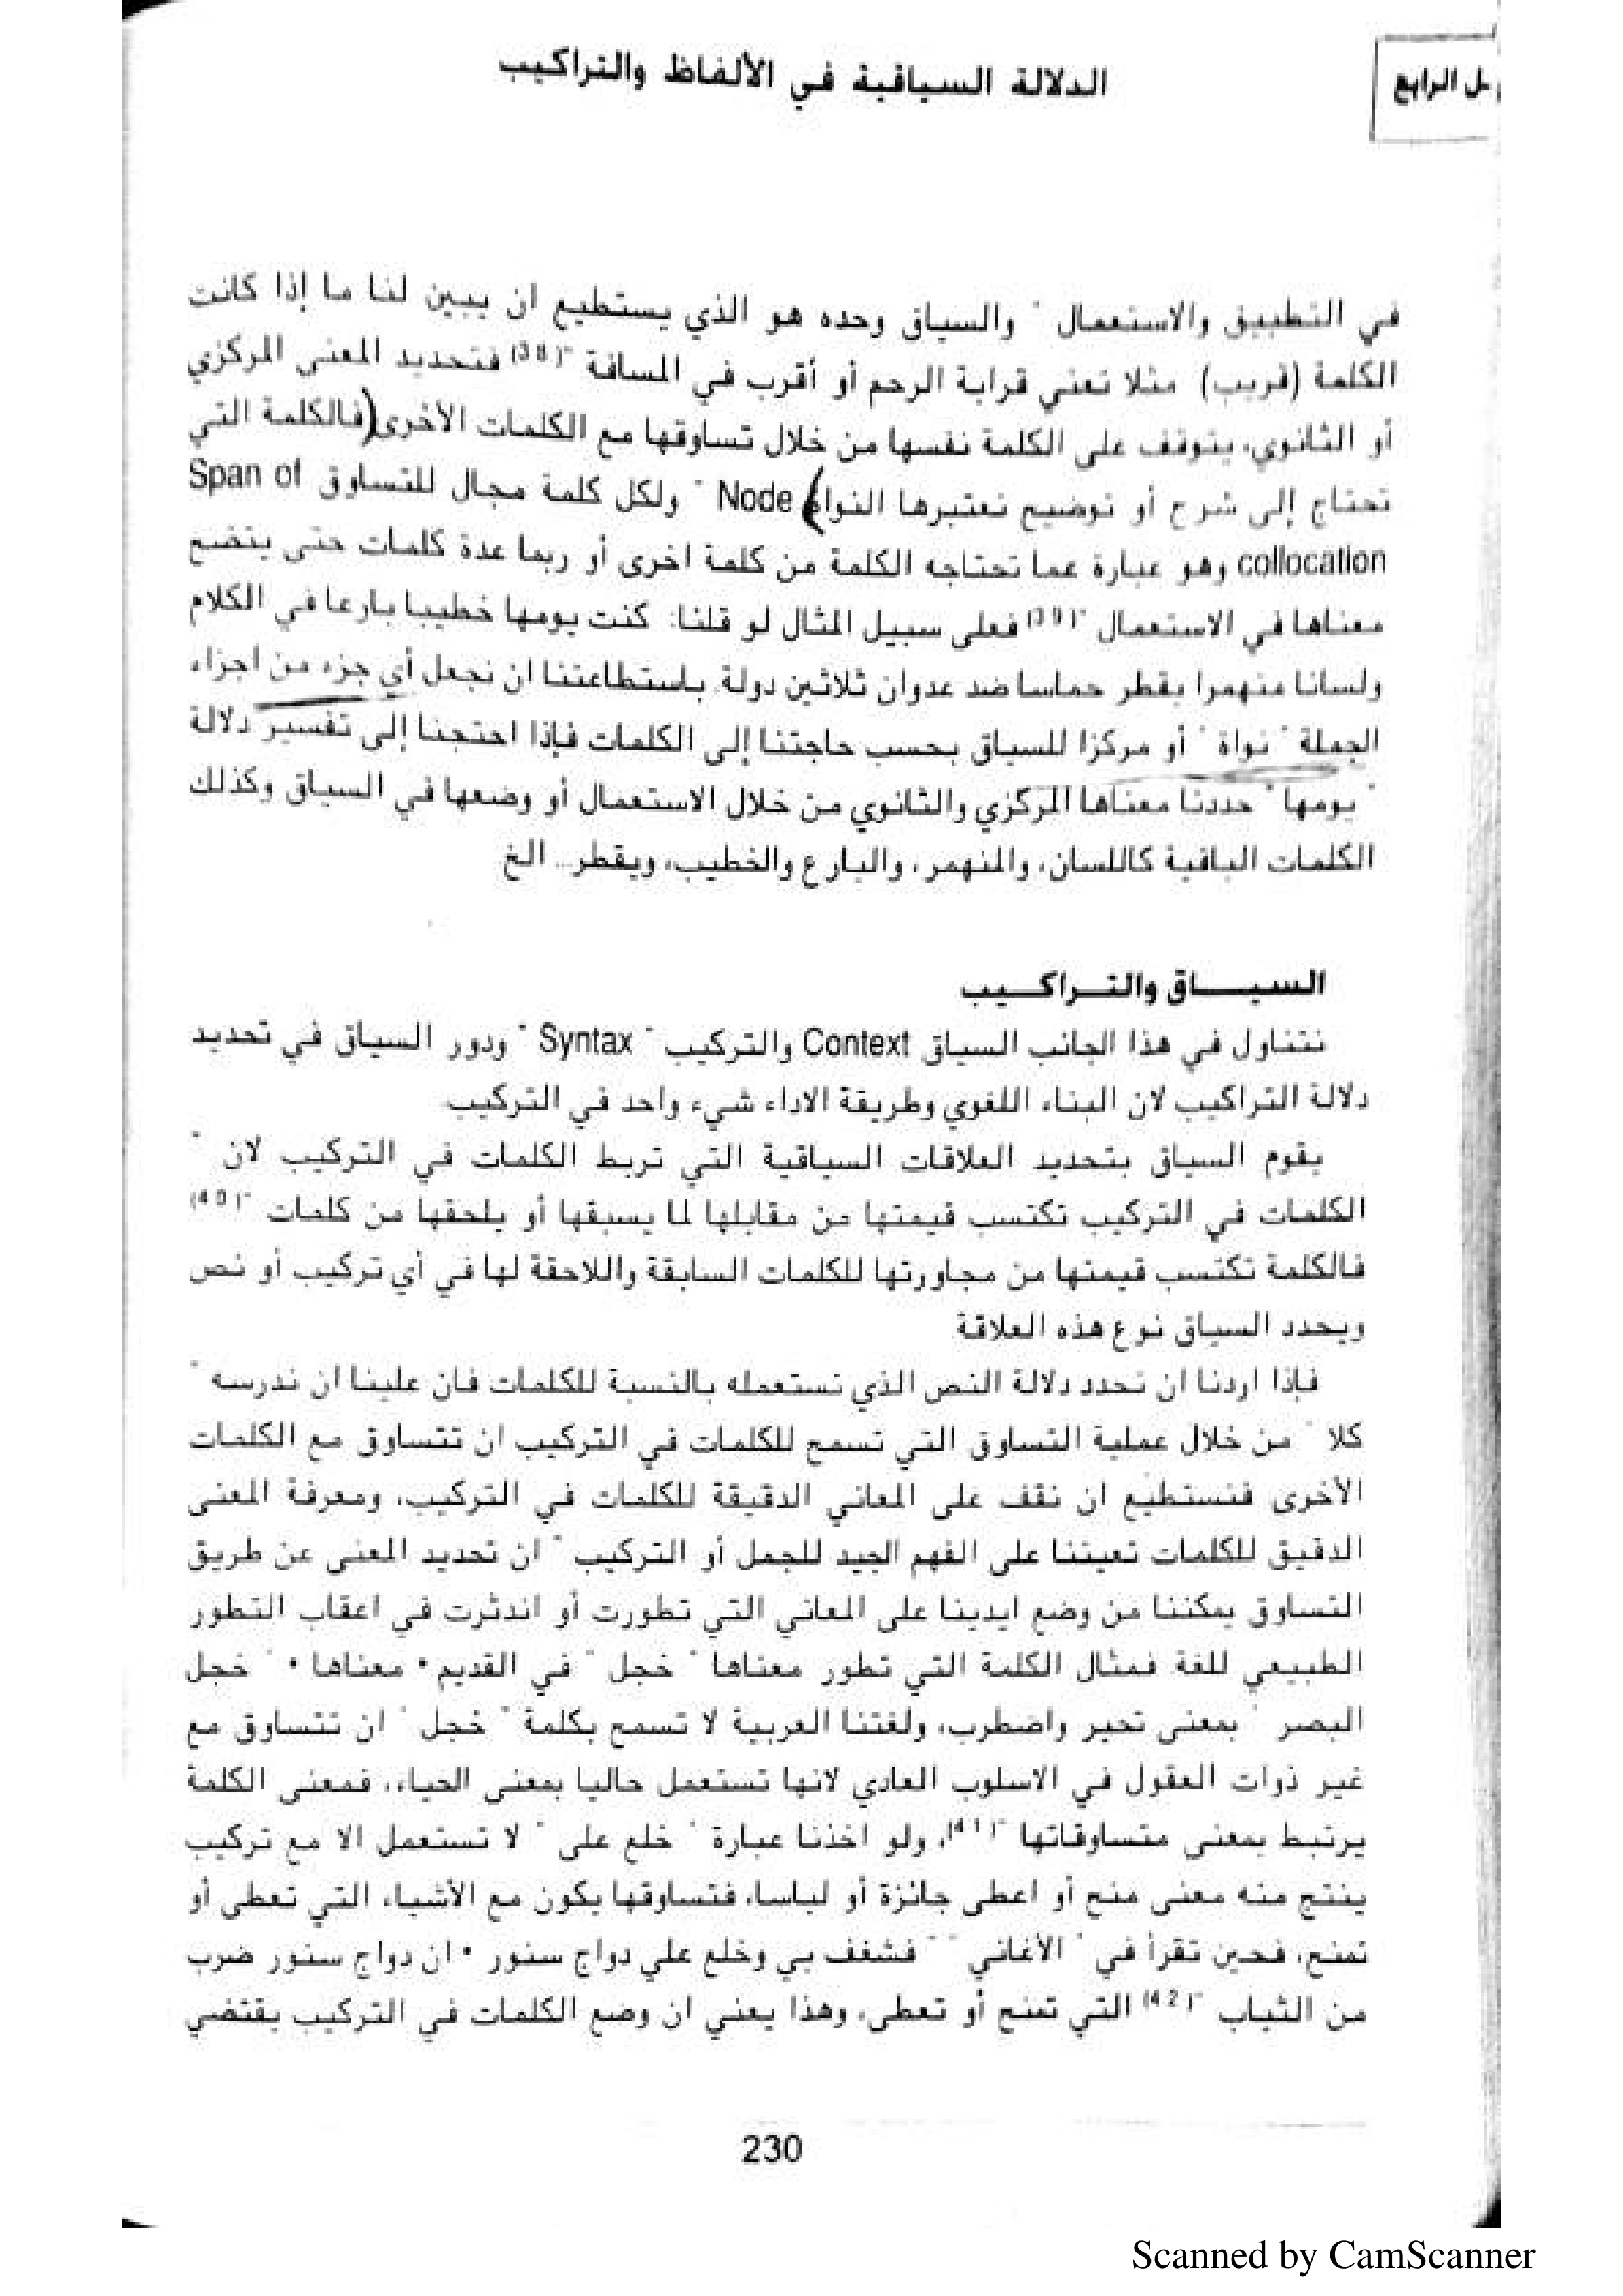 ل الرابع
الدلالة السياقية في الألفاظ والتراكيب
في التطبيق والاستعمال " والسياق وحده هو الذي يستطيع ان يبين لنا ما إذا كانت
الكلمة (قريب) مثلا تعني قرابة الرحم أو أقرب في المسافة "(38) فتحديد المعنى المركزي
أو الثانوي، يتوقف على الكلمة نفسها من خلال تساوقها مع الكلمات الأخرى (فالكلمة التي
تحتاج إلى شرح أو توضيح نعتبرها النواة) Node " ولكل كلمة مجال للتساوق Span of
collocation وهو عبارة عما تحتاجه الكلمة من كلمة اخرى أو ربما عدة كلمات حتى يتضح
معناها في الاستعمال "(39) فعلى سبيل المثال لو قلنا: كنت يومها خطيبا بارعا في الكلام
ولسانا منهمرا يقطر حماسا ضد عدوان ثلاثين دولة. باستطاعتنا ان نجعل أي جزء من اجزاء
الجملة " نواة " أو مركزا للسياق بحسب حاجتنا إلى الكلمات فإذا احتجنا إلى تفسير دلالة
" يومها " حددنا معناها المركزي والثانوي من خلال الاستعمال أو وضعها في السياق وكذلك
الكلمات الباقية كاللسان، والمنهمر، والبارع والخطيب، ويقطر... الخ
السيـــاق والتـراكــيب
نتناول في هذا الجانب السياق Context والتركيب " Syntax " ودور السياق في تحديد
دلالة التراكيب لان البناء اللغوي وطريقة الاداء شيء واحد في التركيب.
يقوم السياق بتحديد العلاقات السياقية التي تربط الكلمات في التركيب لان "
الكلمات في التركيب تكتسب قيمتها من مقابلها لما يسبقها أو يلحقها من كلمات "(40)
فالكلمة تكتسب قيمتها من مجاورتها للكلمات السابقة واللاحقة لها في أي تركيب أو نص
ويحدد السياق نوع هذه العلاقة
فإذا اردنا ان نحدد دلالة النص الذي نستعمله بالنسبة للكلمات فان علينا ان ندرسه "
كلا " من خلال عملية التساوق التي تسمح للكلمات في التركيب ان تتساوق مع الكلمات
الأخرى فنستطيع ان نقف على المعاني الدقيقة للكلمات في التركيب، ومعرفة المعنى
الدقيق للكلمات تعيننا على الفهم الجيد للجمل أو التركيب " ان تحديد المعنى عن طريق
التساوق يمكننا من وضع ايدينا على المعاني التي تطورت أو اندثرت في اعقاب التطور
الطبيعي للغة فمثال الكلمة التي تطور معناها " خجل " في القديم • معناها • " خجل
البصر " بمعنى تحير واضطرب، ولغتنا العربية لا تسمح بكلمة " خجل " ان تتساوق مع
غير ذوات العقول في الاسلوب العادي لانها تستعمل حاليا بمعنى الحياء، فمعنى الكلمة
يرتبط بمعنى متساوقاتها "(41)، ولو اخذنا عبارة " خلع على " لا تستعمل الا مع تركيب
ينتج منه معنى منح أو اعطى جائزة أو لباسا، فتساوقها يكون مع الأشياء التي تعطى أو
تمنح، فحين تقرأ في " الأغاني " " فشغف بي وخلع علي دواج سنور • ان دواج سنور ضرب
من الثياب "(42) التي تمنح أو تعطى، وهذا يعني ان وضع الكلمات في التركيب يقتضي
230
Scanned by CamScanner